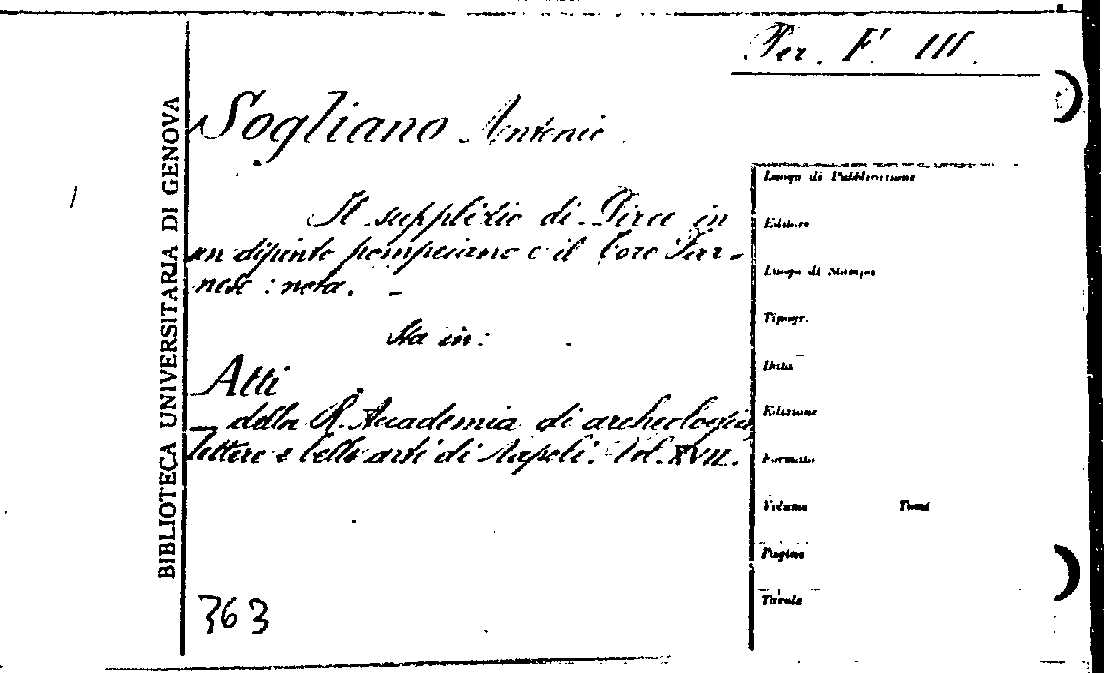 Per. F. III.
Sogliano Antonio
Il supplizio di Dirce in
un dipinto pompeiano e il Toro Far-
nese : nota. -
Sta in:
Atti
della R. Accademia di archeologia
lettere e belle arti di Napoli. Vol. XVII.
363
BIBLIOTECA UNIVERSITARIA DI GENOVA
Luogo di Pubblicazione
Editore
Luogo di Stampa
Tipogr.
Data
Edizione
Formato
Volume Tomi
Pagine
Tavole